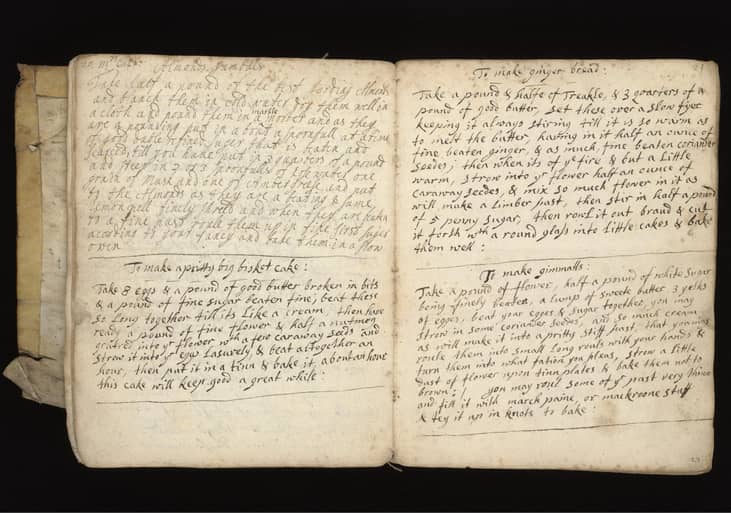 Almonds Jumballs
Take half a pound of the best Jordin Almonds
and blanch them in cold water dry them well in
a cloth and pound them in a morter and as they
marble
are a pounding put in about a spoonfull at a time
of good dable refined suger that is beaten and
searced till you have put in 3 quarters of a pound
and keep in 2 or 3 spoonfulls of
graine of Musk and one of Ambergreese and put
to the Almonds as they are a beating & some
Lemon pell finely shred and when they are
to a fine past roule them up in fine sifted suger
according to your fancy and bake them in a slow
oven
To make a pritty big bisket cake:
Take 8 eggs & a pound of good butter broken in bits
& a pound of fine sugar beaten fine, beat these
so long together till its Like a cream, then have
ready a pound of fine flower & half a nutmeg
grated into yr flower with a few caraway seeds and
strow it into yr eggs Lasurely & beat altogether an
hour, then put it in a tinn & bake it about an houre
this cake will keep good a great while:
To make ginger bread:
21
Take a pound & halfe of Treakle, & 3 quarters of a
pound of good butter, set these over a slow fyer
keeping it always stiring till it is so warm as
to melt the butter, having in it half an ounce of
fine beaten ginger, & as much, fine beaten coriander
seedes; then when its of ye fire & but a Little
warm, strow into yr flower half an ounce of
caraway seedes, & mix so much flower in it as
will make a Limber past, then stir in half a pound
of 5 penny sugar, then rowl it out broad & cut
it forth wth a round glass into Little cakes & bake
them well:
To make gimmalls:
Take a pound of flower, half a pound of white sugar
being finely beaten, a Lump of sweete butter 3 yolks
of egges, beat your egges & sugar together, you may
strow in some coriander seedes, and so much cream
as will make it into a pritty stiff past, that you may
roule them into small Long rouls with your hands &
turn them into what fation you pleas, strow a little
dust of flower upon tinn plates & bake them not to
brown; you may roul some of ye past very thinn
and fill it with march paine, or mackroone stuff
& tey it up in knots to bake: